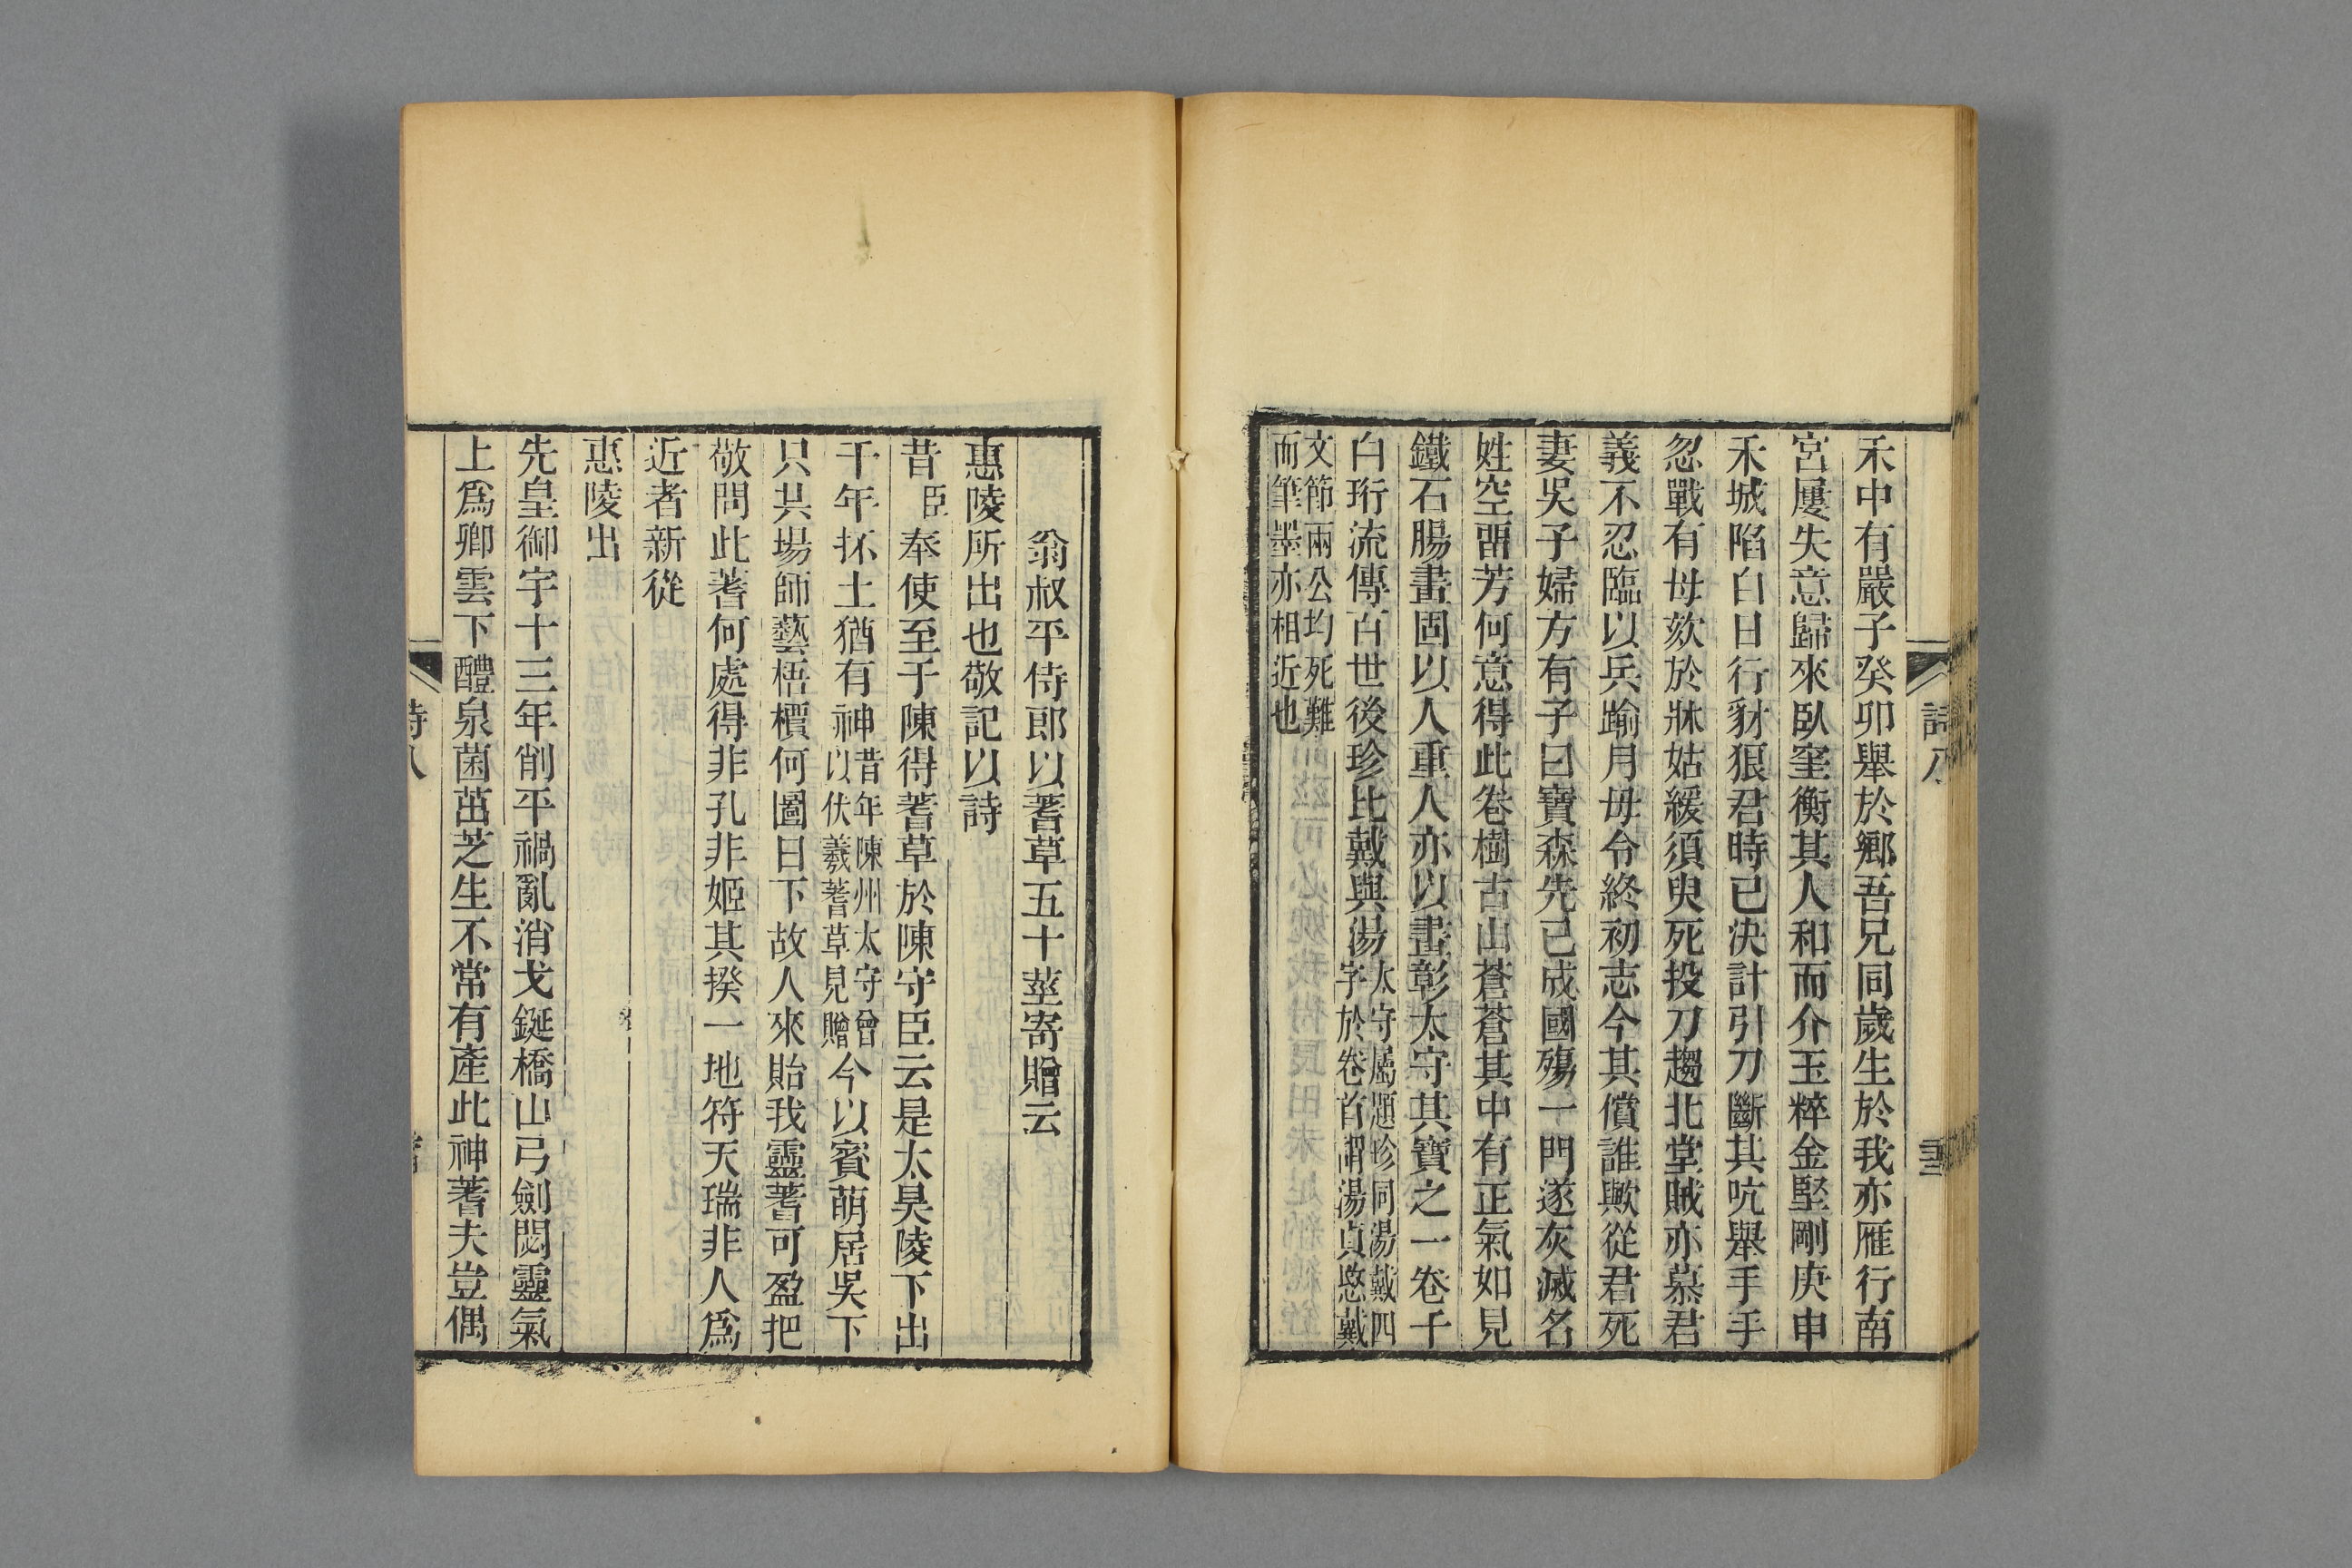 禾中有嚴子癸卯舉於鄉吾兄同歲生於我亦雁行南
宮屢失意歸來臥窐衡其人和而介玉粹金堅剛庚申
禾城陷白日行豺狼君時已決計引刀斷其吭舉手手
忽戰有母欬於牀姑緩須臾死投刀趨北堂賊亦慕君
義不忍臨以兵踰月母令終初志今其償誰歟從君死
妻吳子子婦方有子曰寶森先已成國殤一門遂灰滅名
姓空畱芳何意得此卷樹古山蒼蒼其中有正氣如見
鐵石腸畫固以人重人亦以畫彰太守其寶之一卷千
白珩流傳百世後珍比戴與湯太守屬題珍同湯戴四
字於卷首謂湯貞愍戴
文節兩公均死難
而筆墨亦相近也
詩八
翁叔平侍郎以蓍草五十莖寄贈云
惠陵所出也敬記以詩
昔臣奉使至于陳得蓍草於陳守臣云是太昊陵下出
千年抔土猶有神昔年陳州太守曾
以伏羲蓍草見贈今以賓萌居吳下
只共場師藝梧檟何圖日下故人來貽我靈蓍可盈把
敬問此蓍何處得非孔非姬其揆一地符天瑞非人爲
近者新從
惠陵出
先皇御宇十三年削平禍亂消戈鋋橋山弓劍閟靈氣
上爲卿雲下醴泉菌茁芝生不常有產此神蓍夫豈偶
詩八